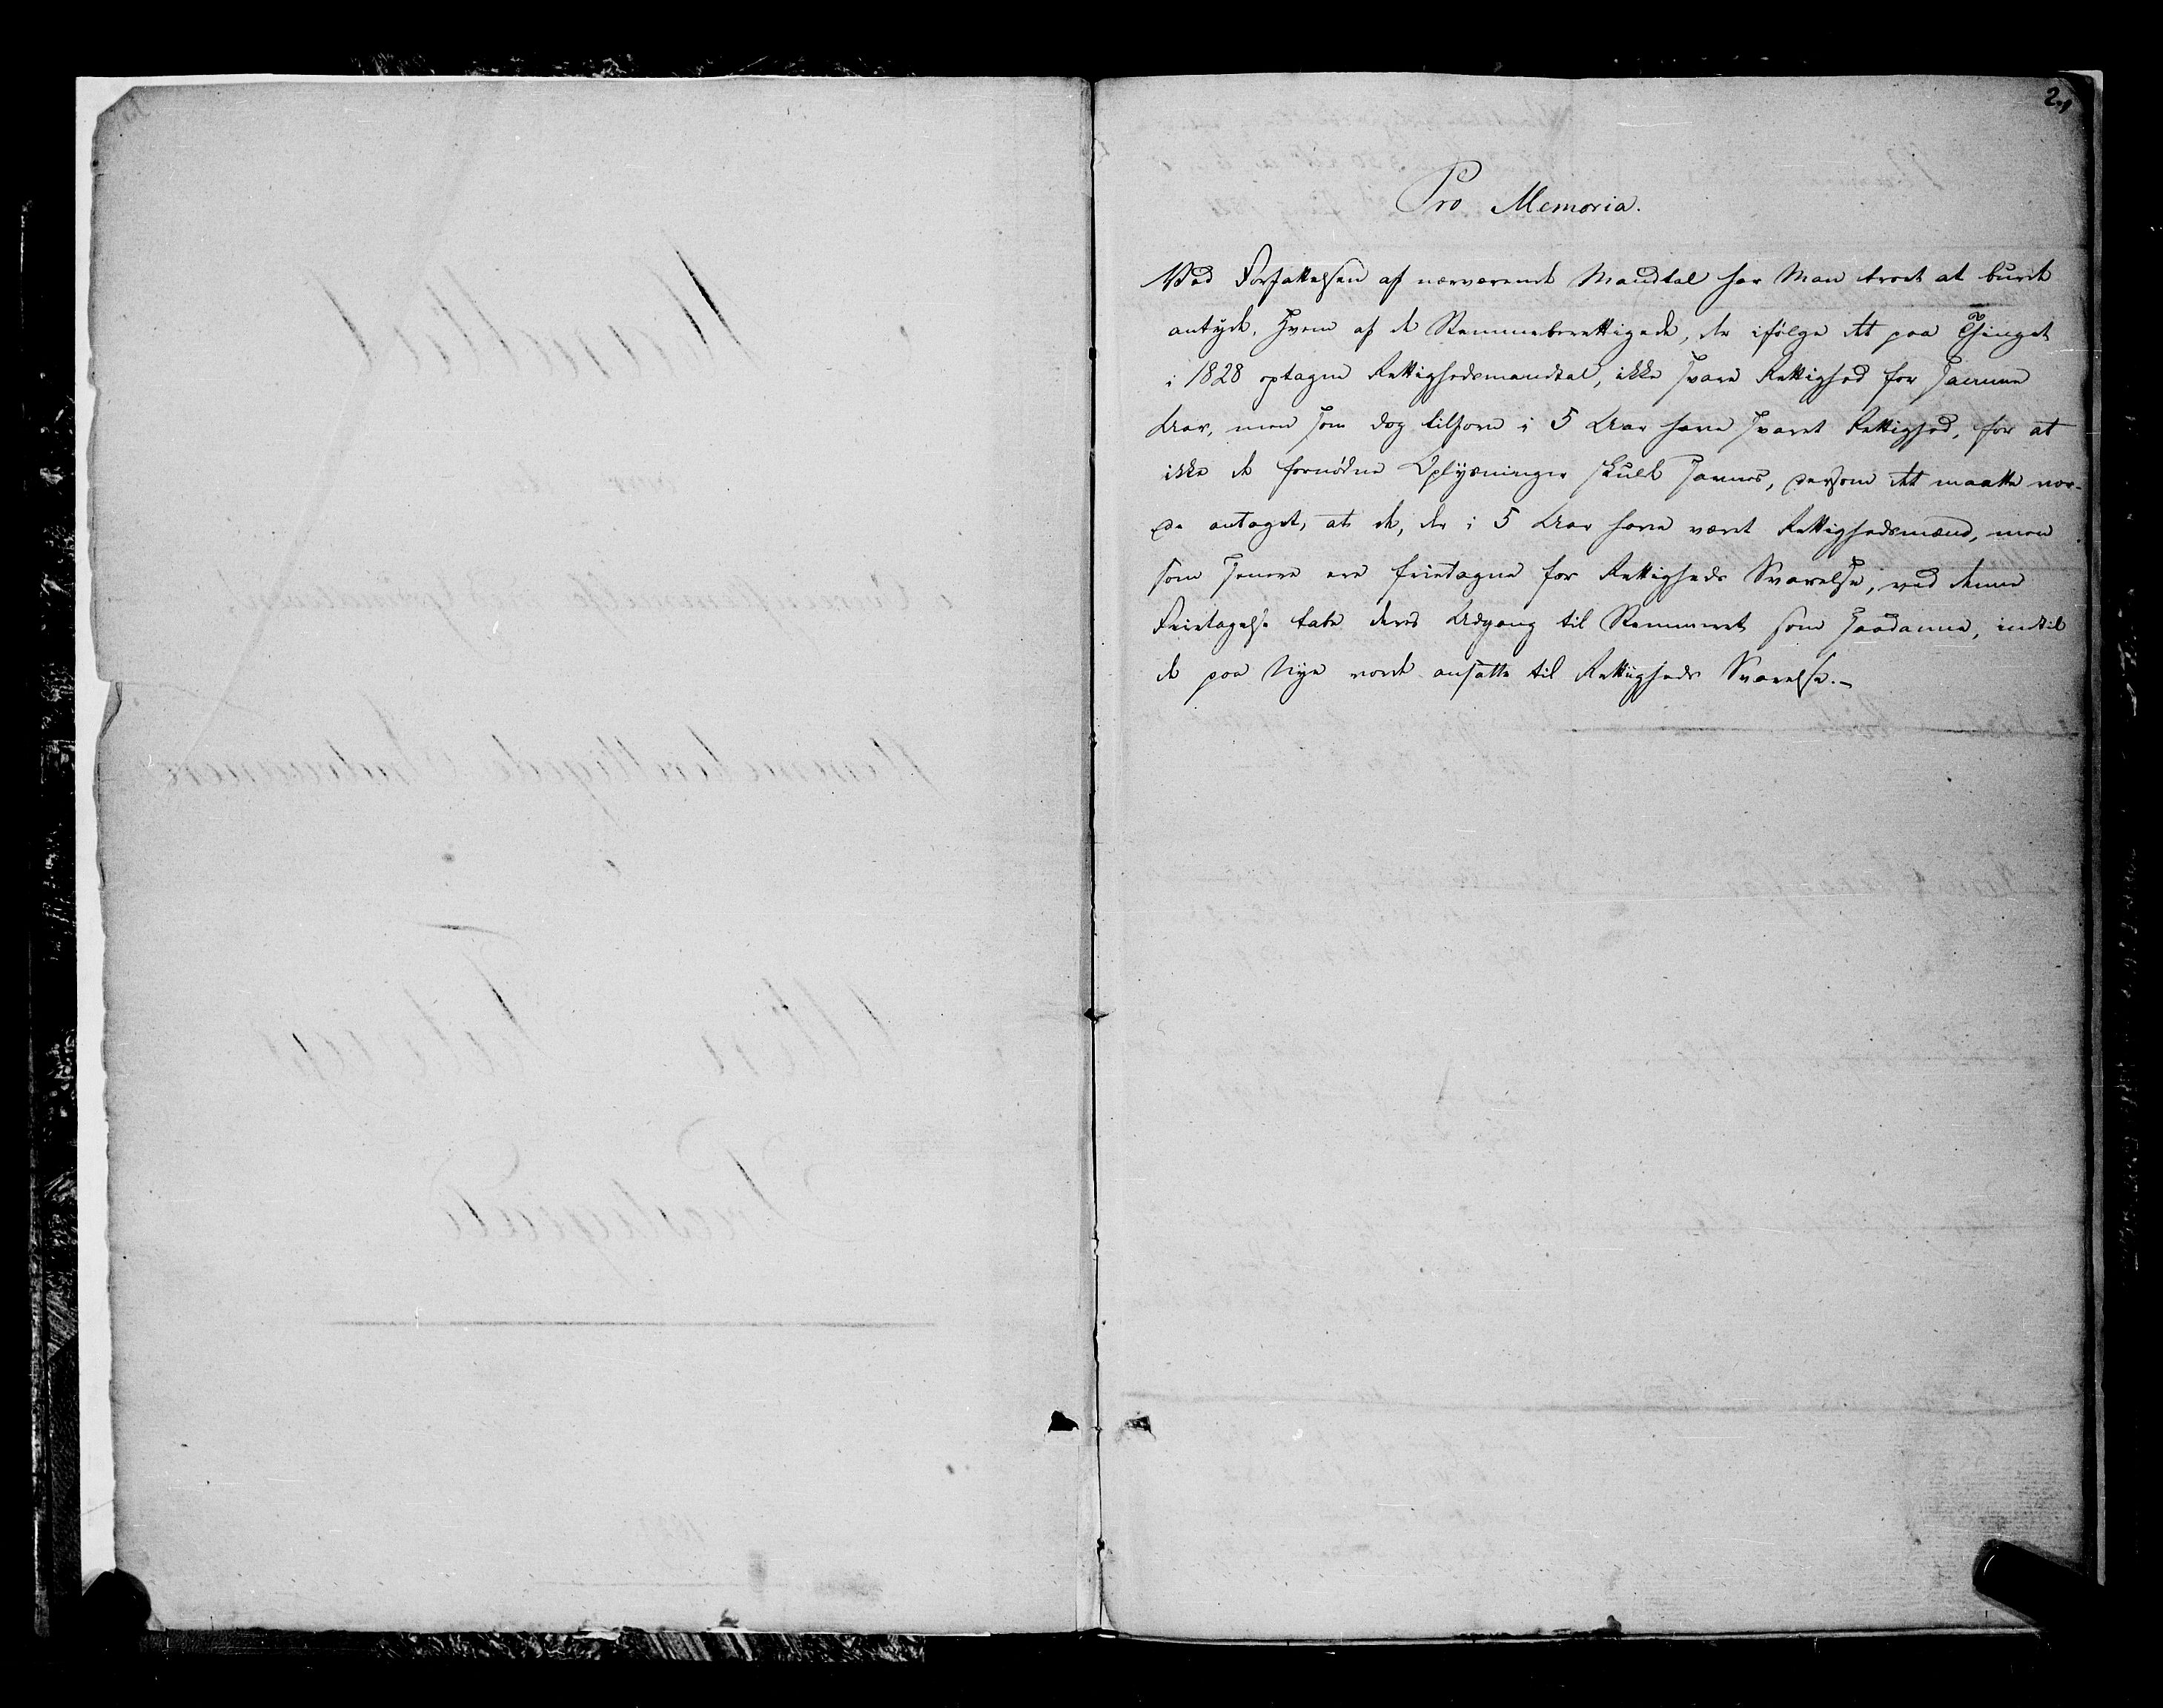 2.
Pro Memoria.
Ved Forfattelsen af nærværende Mandtal har Man troet at burde
antyde, hvem af de Stemmeberettigede, der ifølge det paa Thinget
i 1828 optagne Rettighedsmandtal, ikke svare Rettighed for samme
Aar, men som dog tilforn i 5 Aar have svaret Rettighed, for at
ikke de fornødne Oplysninger skulde savnes, dersom det maatte vor-
de antaget, at de, der i 5 Aar have været Rettighedsmænd, men
som senere ere fritagne for Rettigheds Svarelse, ved denne
Fritagelse tabe deres Adgang til Stemmeret som saadanne, indtil
de paa Nye vorde ansatte til Rettigheds Svarelse.-